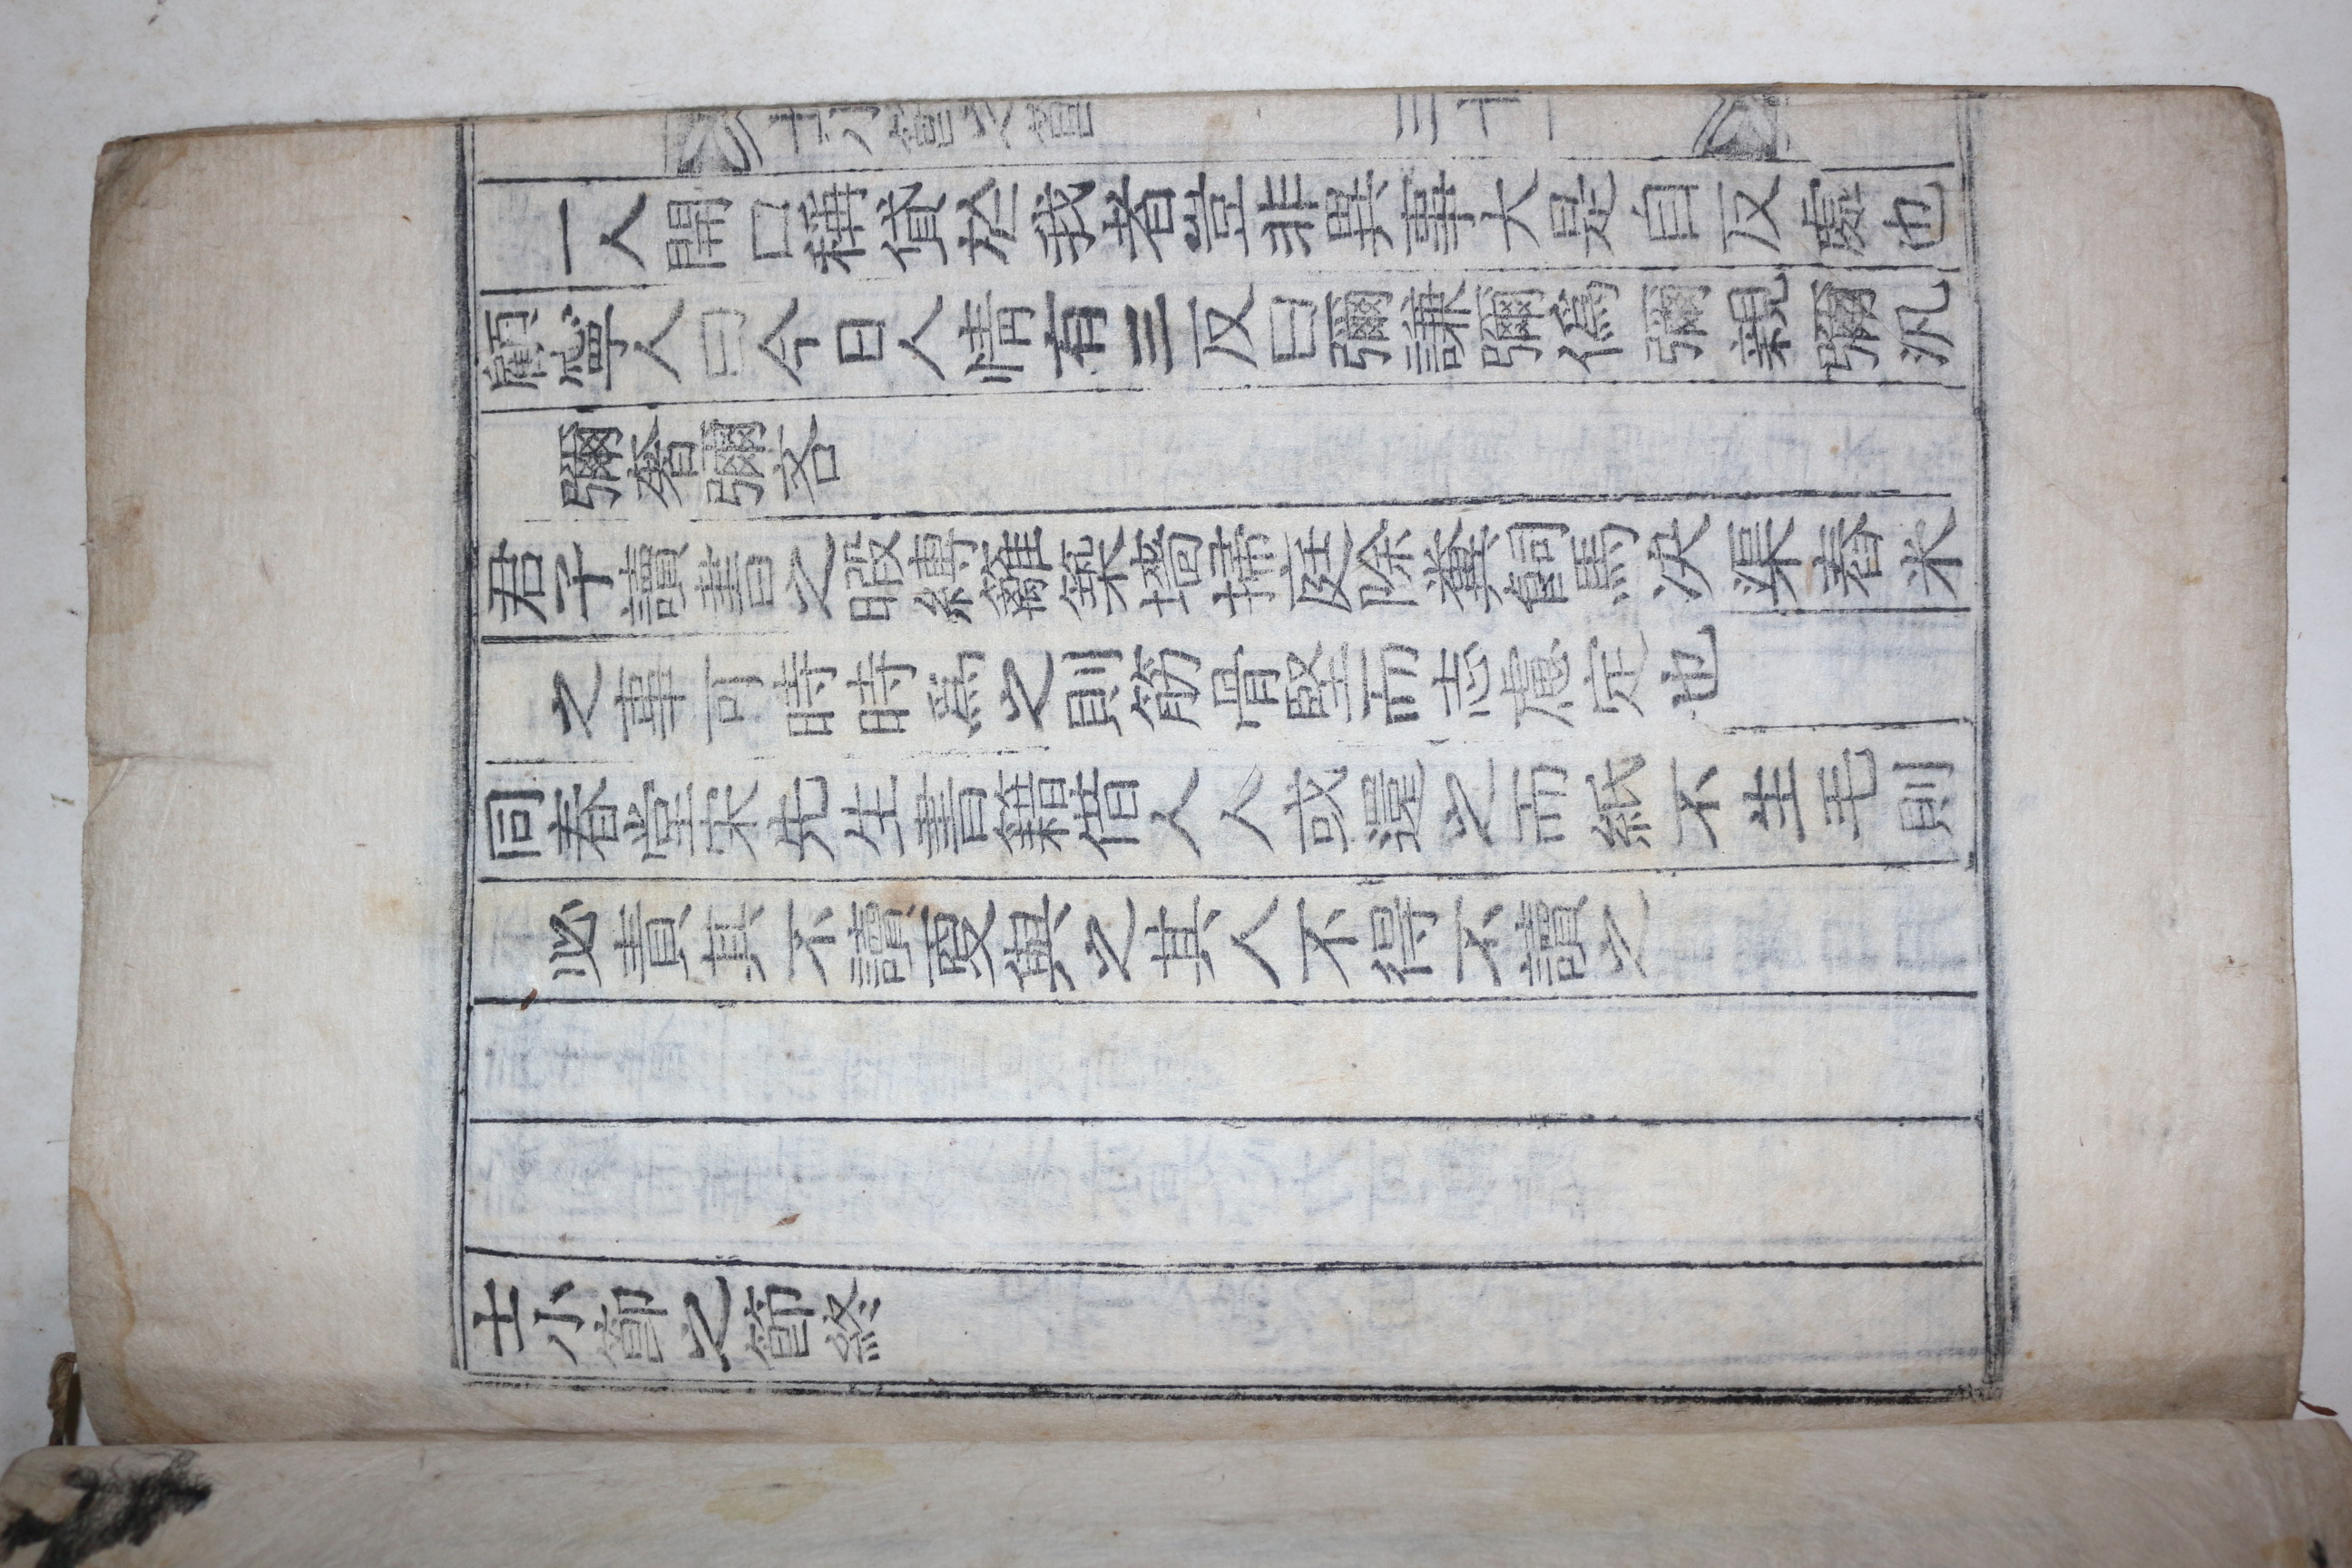 士小節之節 三十一
一人開口稱貸於我者豈非異事大是自反處也
顧寧人曰今日人情有三反曰彌謙彌僞彌親彌汎
彌奢彌吝
君子讀書之暇縛籬築墻掃庭除糞飼馬決渠舂米
之事可時時爲之則筋骨堅而志慮定也
同春堂宋先生書籍借人人或還之而紙不生毛則
必責其不讀更與之其人不得不讀之
士小節之節終